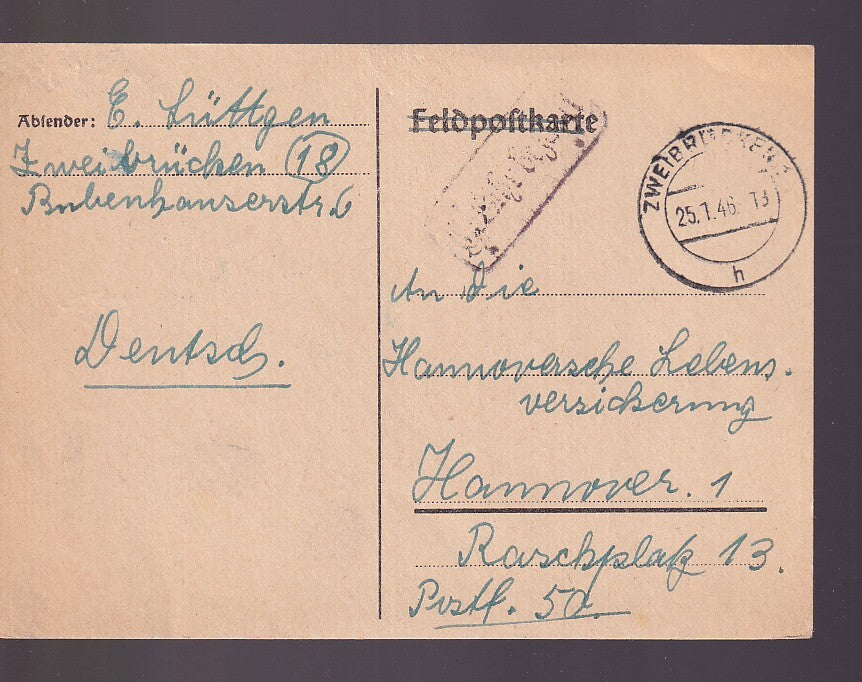 Absender: E. Lüttgen
Zweibrücken (18)
Bubenhauserstr. 6
Deutsch.
Feldpostkarte
ZWEIBRÜCKEN
25.1.46. 13
h
An die
Hannoversche Lebens-
versicherung
Hannover. 1
Raschplatz 13.
Postf. 50.